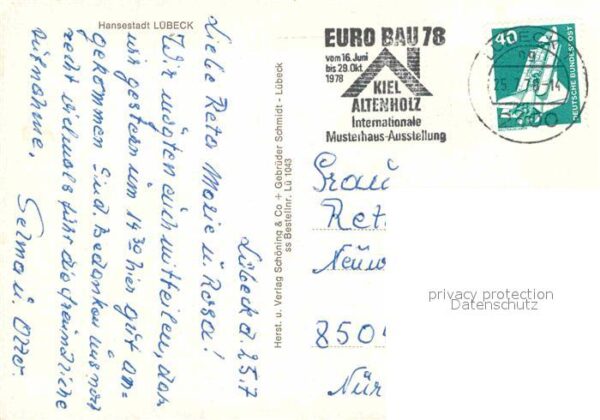 Hansestadt LÜBECK
Lübeck d. 25.7
Liebe Reta Marie u. Rosa!
Wir wollten euch mitteilen, dah
wir gestern um 14 30 hier gut an-
gekommen sind. Bedanken uns noch
recht vielmals für die freundliche
Aufnahme.
Selma u. Otto.
Herst. u. Verlag Schöning & Co + Gebrüder Schmidt - Lübeck
ss Bestellnr. Lü 1043
EURO BAU 78
vom 16. Juni
bis 29. Okt.
1978
KIEL
ALTENHOLZ
Internationale
Musterhaus-Ausstellung
40
DEUTSCHE BUNDESPOST
Frau
Ret
850
Nür
privacy protection
Datenschutz